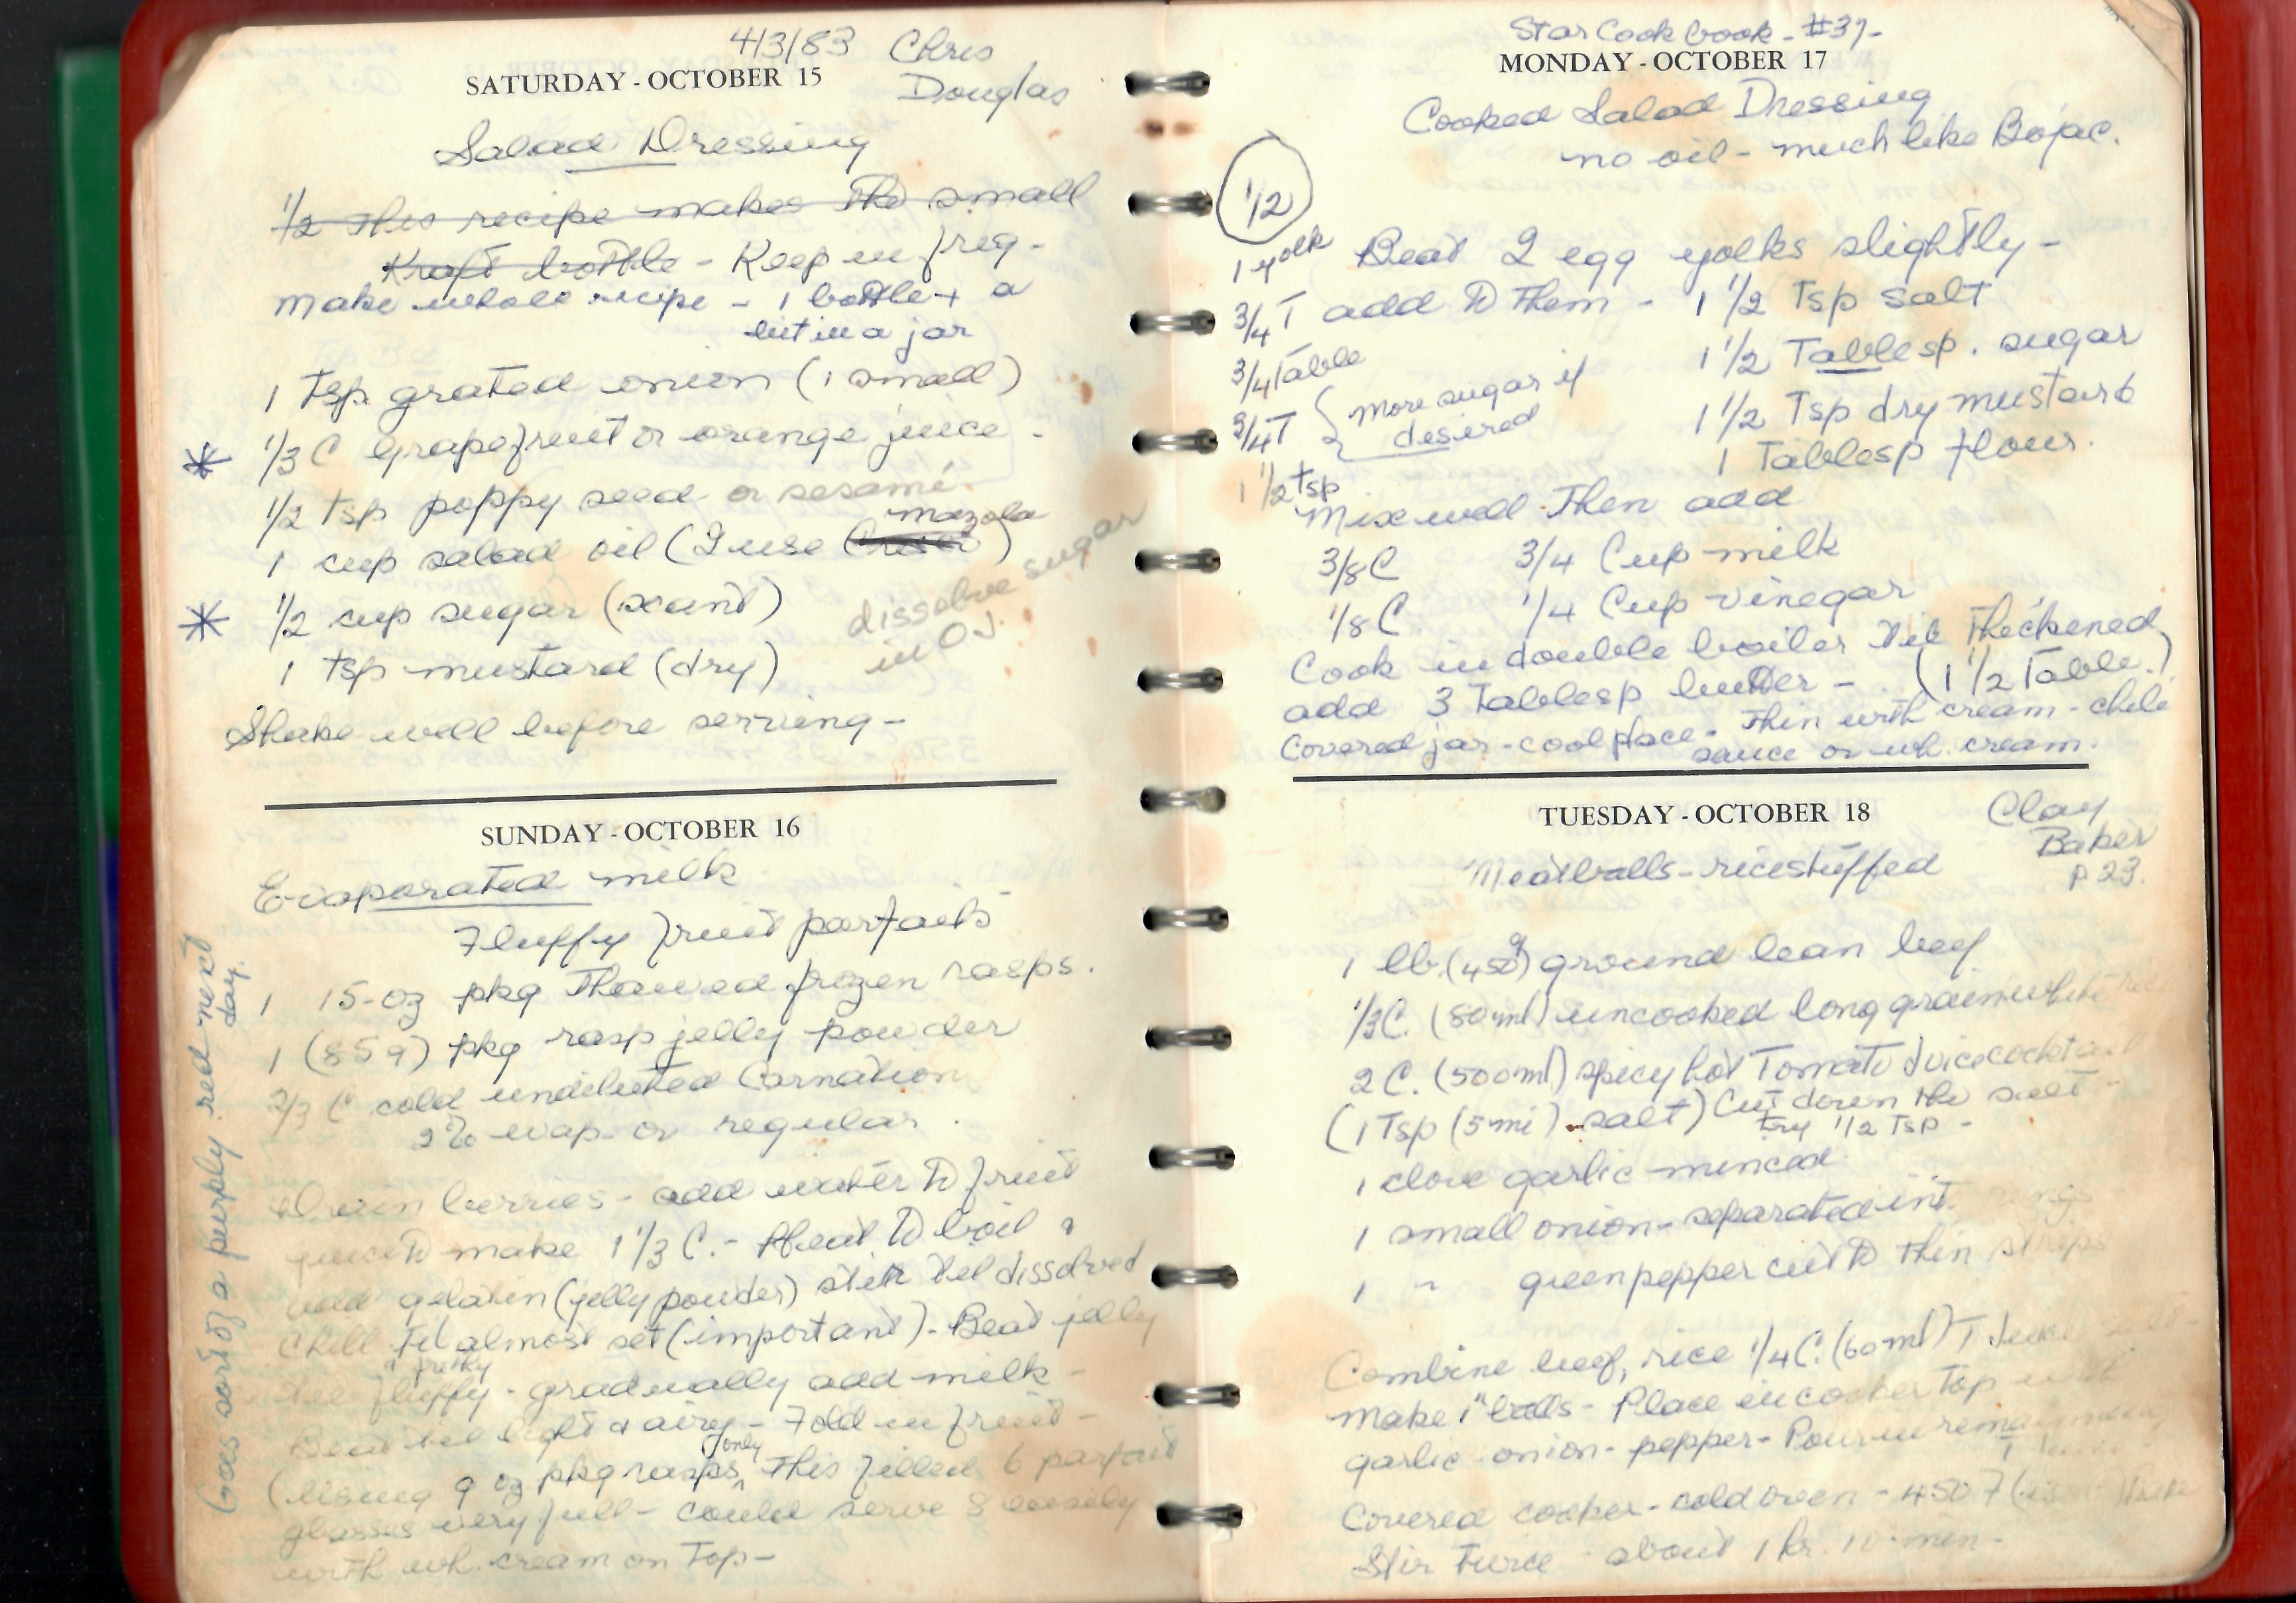 4/3/83 Chris
Douglas
SATURDAY - OCTOBER 15
Salad Dressing
1/2 this recipe makes the small
Kraft bottle - Keep in frig -
make whole recipe - 1 bottle + a
bit in a jar
1 Tsp grated onion (1 small)
* 1/3 C Grapefruit or orange juice -
1/2 tsp poppy seed or sesamé
mazola
1 cup salad oil (I use Crisco)
* 1/2 cup sugar (scant)
dissolve sugar
in OJ.
1 tsp mustard (dry)
Shake well before serving -
SUNDAY - OCTOBER 16
Evaporated milk
Fluffy fruit parfaits
1 15-oz pkg Thawed frozen rasps.
1 (85g) pkg rasp jelly powder
2/3 C cold undiluted Carnation
2% evap or regular.
Drain berries - add water to fruit
juice to make 1 1/3 C. - Heat to boil &
add gelatin (jelly powder) stir til dissolved
Chill til almost set (important) - Beat jelly
& frothy
til fluffy - gradually add milk -
Beat til light & airy - Fold in fruit -
only
(Using 9 oz pkg rasps, This filled 6 parfait
glasses very full - could serve 8 easily
with wh. cream on top -
Goes sort of a purply red next
day.
Star Cook book - #37 -
MONDAY - OCTOBER 17
Cooked Salad Dressing
no oil - much like Bojac.
1/2
1 yolk Beat 2 egg yolks slightly -
3/4 T add to them - 1 1/2 Tsp salt
3/4 Table 1 1/2 Tablesp. sugar
3/4 T { More sugar if
desired
1 1/2 Tsp dry mustard
1 1/2 tsp 1 Tablesp flour.
Mix well Then add
3/8 C 3/4 Cup milk
1/8 C 1/4 Cup vinegar
Cook in double boiler til thickened
add 3 Tablesp butter - (1 1/2 Table.)
Covered jar - cool place. Thin with cream - chili
sauce or wh. cream.
TUESDAY - OCTOBER 18
Clay
Baker
P 23.
Meatballs - rice stuffed
1 lb. (450g) ground lean beef
1/3 C. (80 ml) uncooked long grain white rice
2 C. (500 ml) spicy hot Tomato Juice cocktail
(1 Tsp (5 ml) salt) Cut down the salt -
try 1/2 Tsp -
1 clove garlic minced
1 small onion - separated into rings
1 " green pepper cut to thin strips
Combine beef, rice 1/4 C. (60 ml) T Juice salt -
Make 1" balls - Place in cooker Top with
garlic - onion - pepper - Pour in remaining
T
Covered cooker - cold oven - 450 F Bake
Stir twice - about 1 hr. 10 min -